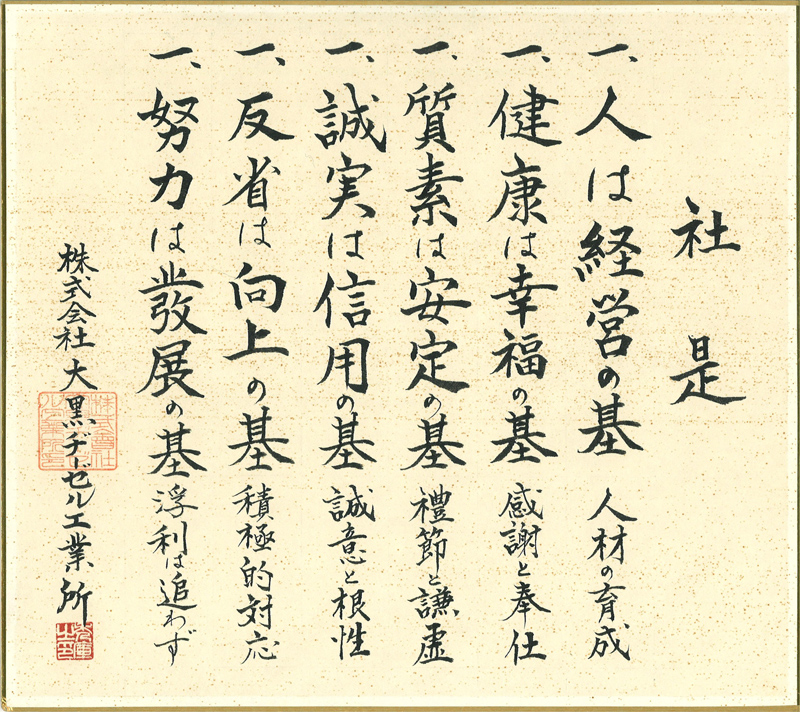 社是
一、人は経営の基 人材の育成
一、健康は幸福の基 感謝と奉仕
一、質素は安定の基 禮節と謙虚
一、誠実は信用の基 誠意と根性
一、反省は向上の基 積極的対応
一、努力は發展の基 浮利は追わず
株式会社大黒ヂーゼル工業所